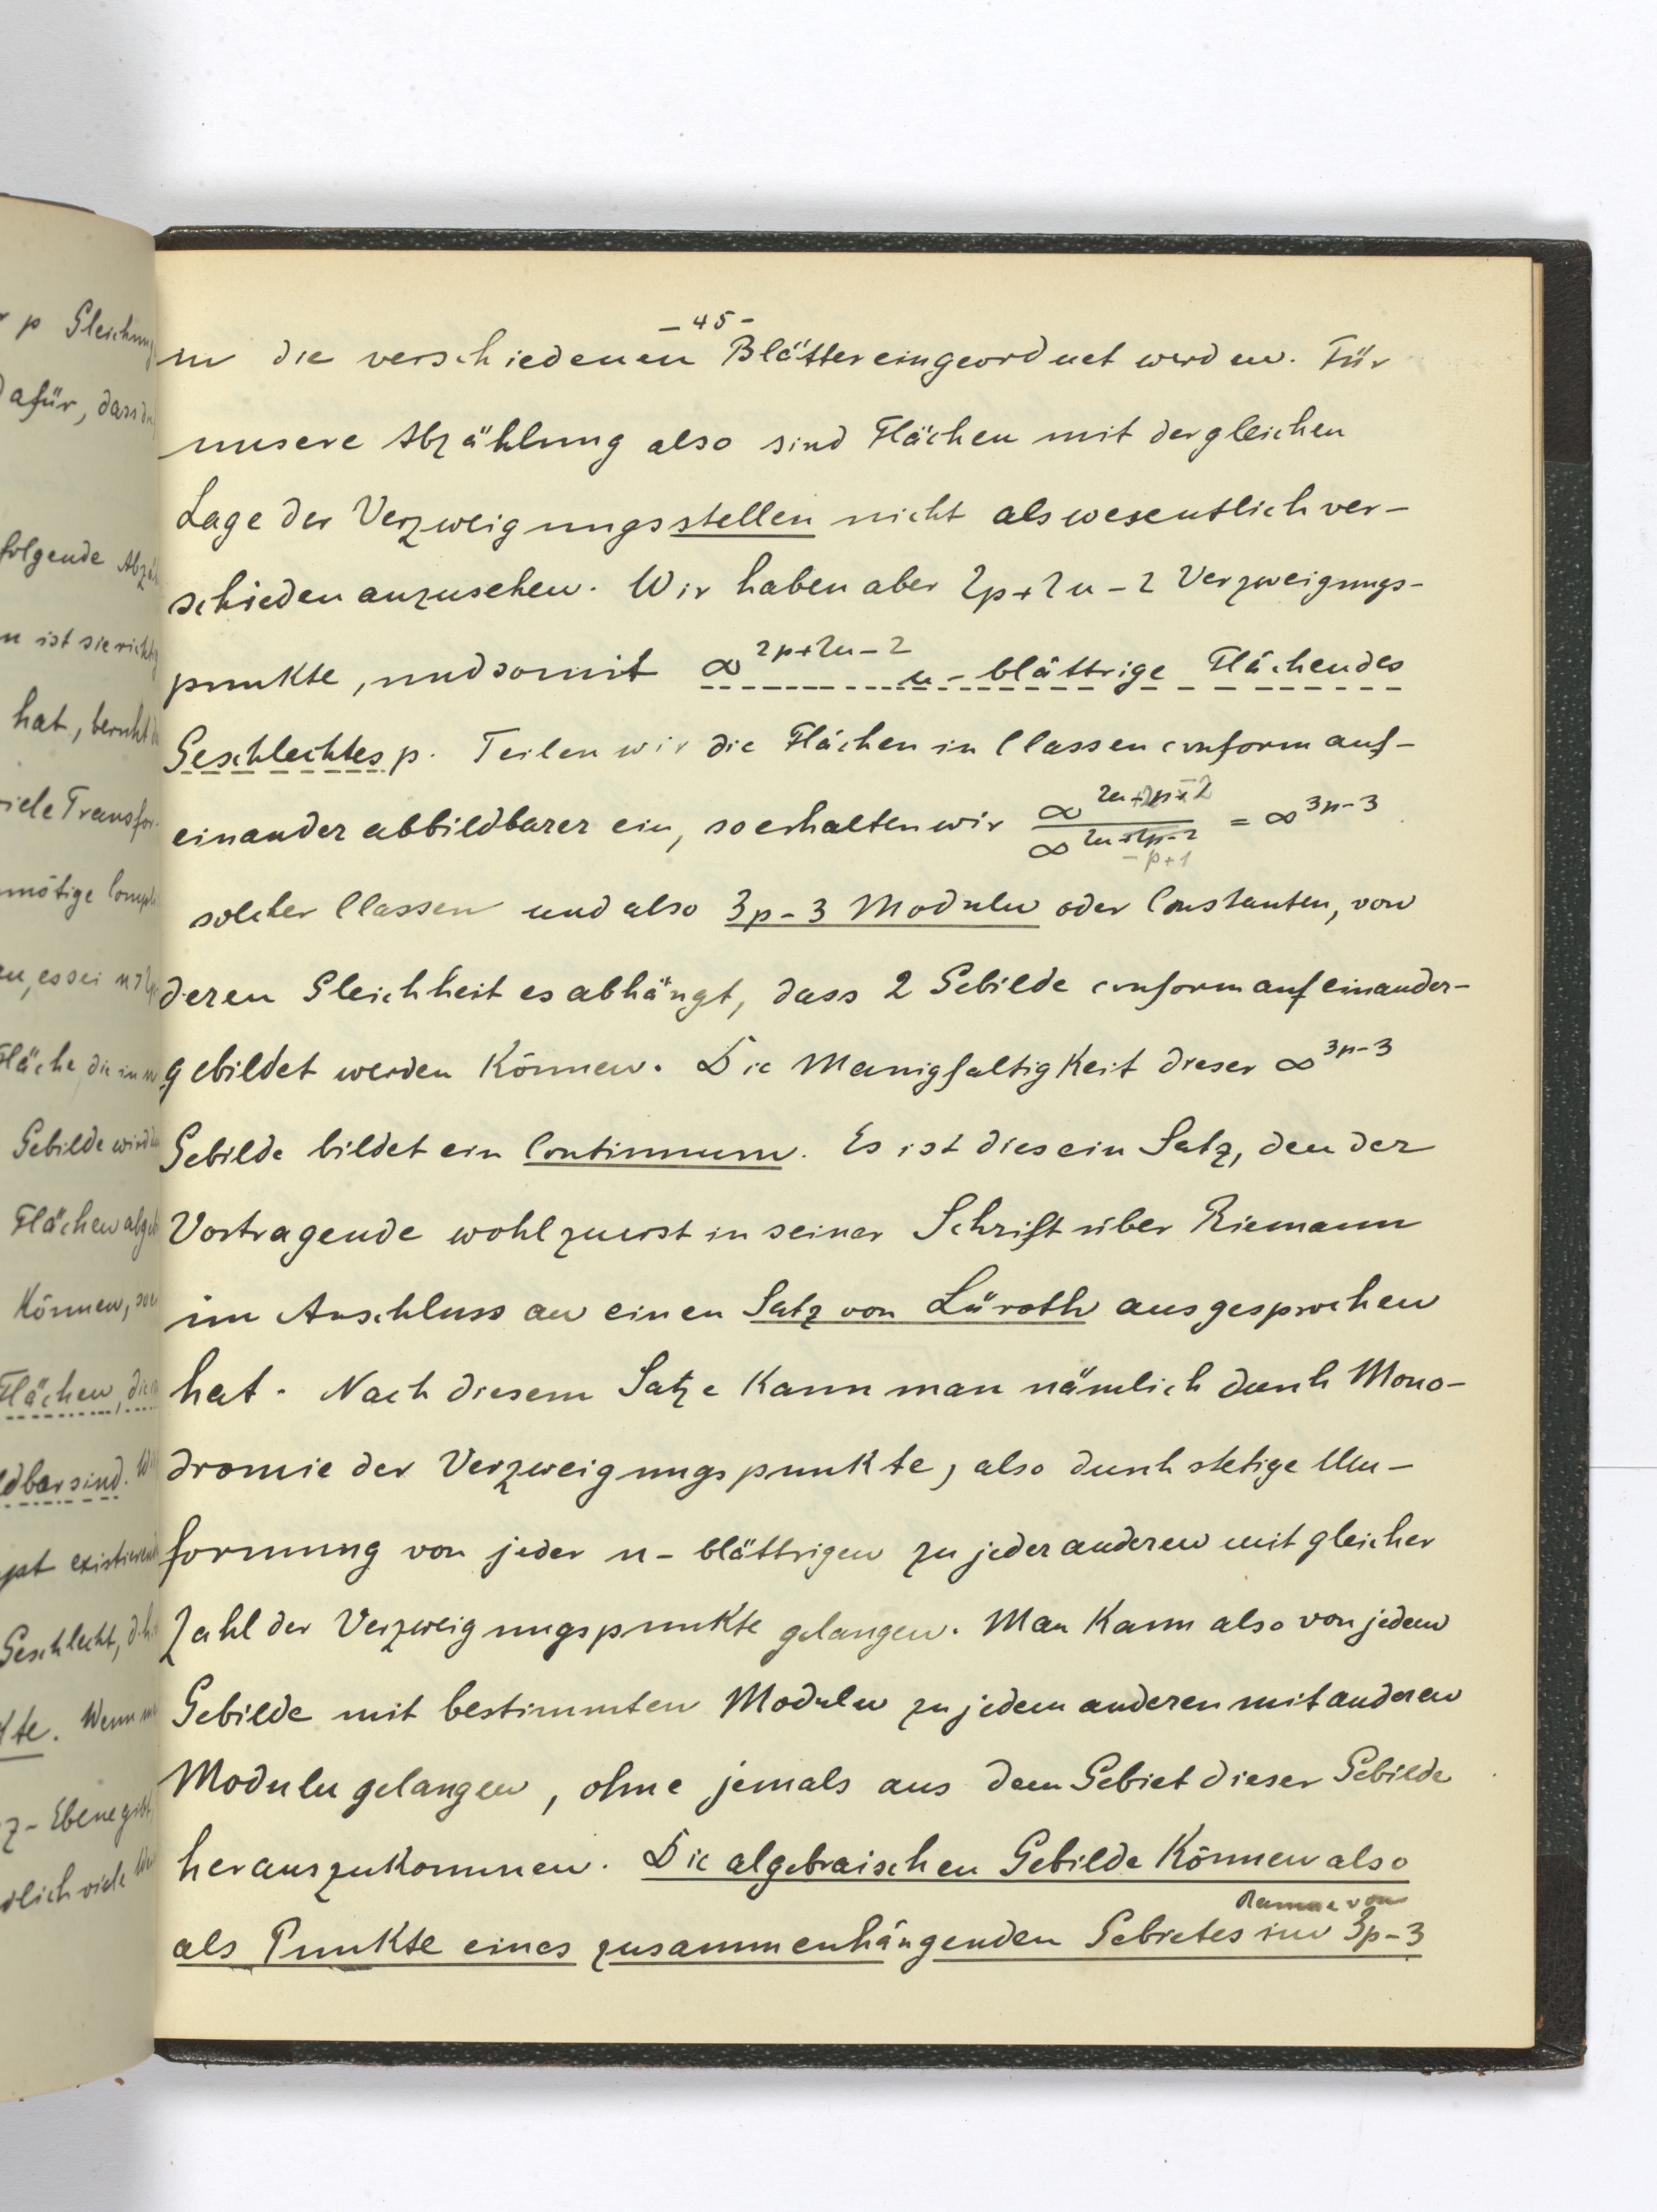 - 45 -
in die verschiedenen Blätter eingeordnet werden. Für
unsere Abzählung also sind Flächen mit der gleichen
Lage der Verzweigungsstellen nicht als wesentlich ver-
schieden anzusehen. Wir haben aber 2p+2n-2 Verzweigungs-
punkte, und somit ∞^{2p+2n-2} n-blättrige Flächen des
Geschlechtes p. Teilen wir die Flächen in Classen conform auf-
einander abbildbarer ein, so erhalten wir ∞^{2n+2p-2} / ∞^{2n-p+1} = ∞^{3p-3}
solcher Classen und also 3p-3 Moduln oder Constanten, von
deren Gleichheit es abhängt, dass 2 Gebilde conform aufeinander-
gebildet werden können. Die Manigfaltigkeit dieser ∞^{3p-3}
Gebilde bildet ein Continuum. Es ist dies ein Satz, den der
Vortragende wohl zuerst in seiner Schrift über Riemann
im Anschluss an einen Satz von Lüroth ausgesprochen
hat. Nach diesem Satze kann man nämlich durch Mono-
dromie der Verzweigungspunkte, also durch stetige Um-
formung von jeder n-blättrigen zu jeder anderen mit gleicher
Zahl der Verzweigungspunkte gelangen. Man kann also von jedem
Gebilde mit bestimmten Moduln zu jedem anderen mit anderen
Moduln gelangen, ohne jemals aus dem Gebiet dieser Gebilde
herauszukommen. Die algebraischen Gebilde können also
Raume von
als Punkte eines zusammenhängenden Gebietes im 3p-3
p Gleichung
dafür, dass
folgende
ist sie richtig
hat, beruht
viele Transfor-
nötige
es sei
Fläche, die in
Gebilde wird
Flächen
können,
Flächen,
ldbar sind.
existieren
Geschlecht, d.h.
kte. Wenn
z-Ebene
dlich viele